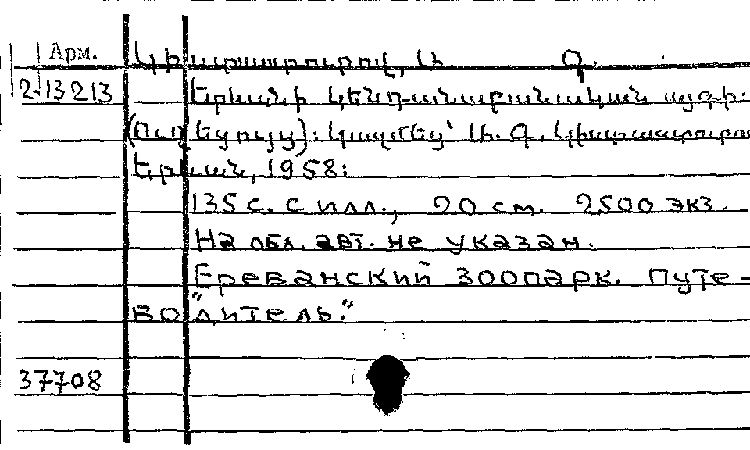 Арм.
2-13213
Երևանի կենդանաբանական այգի.
(Ուղեցույց): Կազմեց՝ Ս. Գ.
Երևան, 1958:
135 с. с илл., 20 см. 2500 экз.
На обл. авт. не указан.
"Ереванский зоопарк. Путе-
водитель."
37708